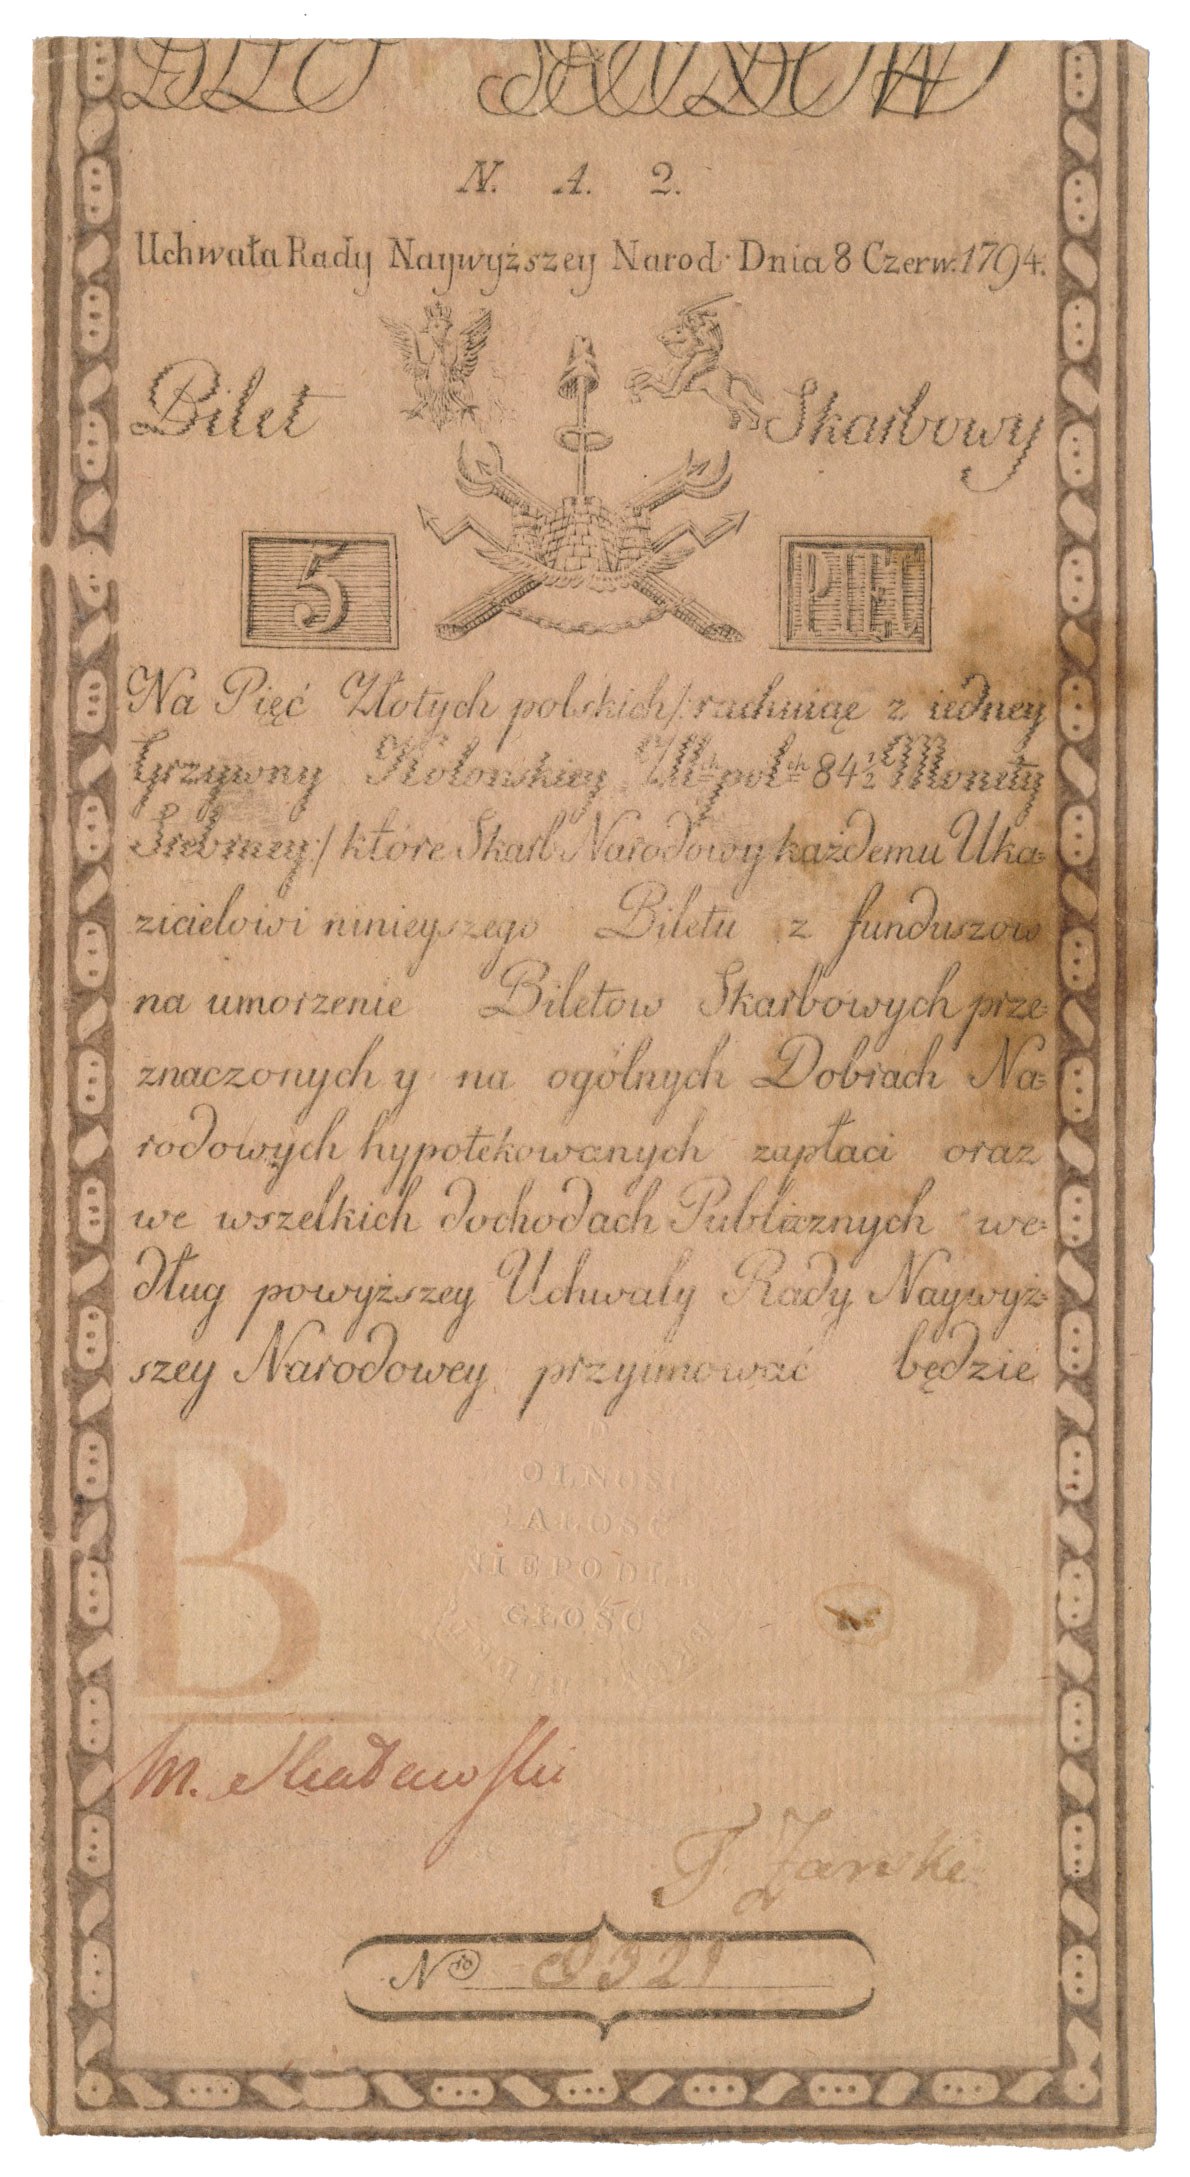 N. A. 2.
Uchwała Rady Naywyższey Narod. Dnia 8 Czerw. 1794.
Bilet Skarbowy
5 PIĘĆ
Na Pięć Złotych polskich /: rachuiąc z iedney
Grzywny Kolonskiey Złł:ch pol:ch 84 1/2 Monety
Srebrney :/ które Skarb Narodowy każdemu Uka=
zicielowi ninieyszego Biletu z funduszow
na umorzenie Biletow Skarbowych prze=
znaczonych y na ogólnych Dobrach Na=
rodowych hypotekowanych zapłaci oraz
we wszelkich dochodach Publicznych we=
dług powyższey Uchwały Rady Naywyż=
szey Narodowey przyimować będzie
OLNOSC
CAŁOSC
NIEPODLE
GŁOSC
B S
M.
F. Zarski
No